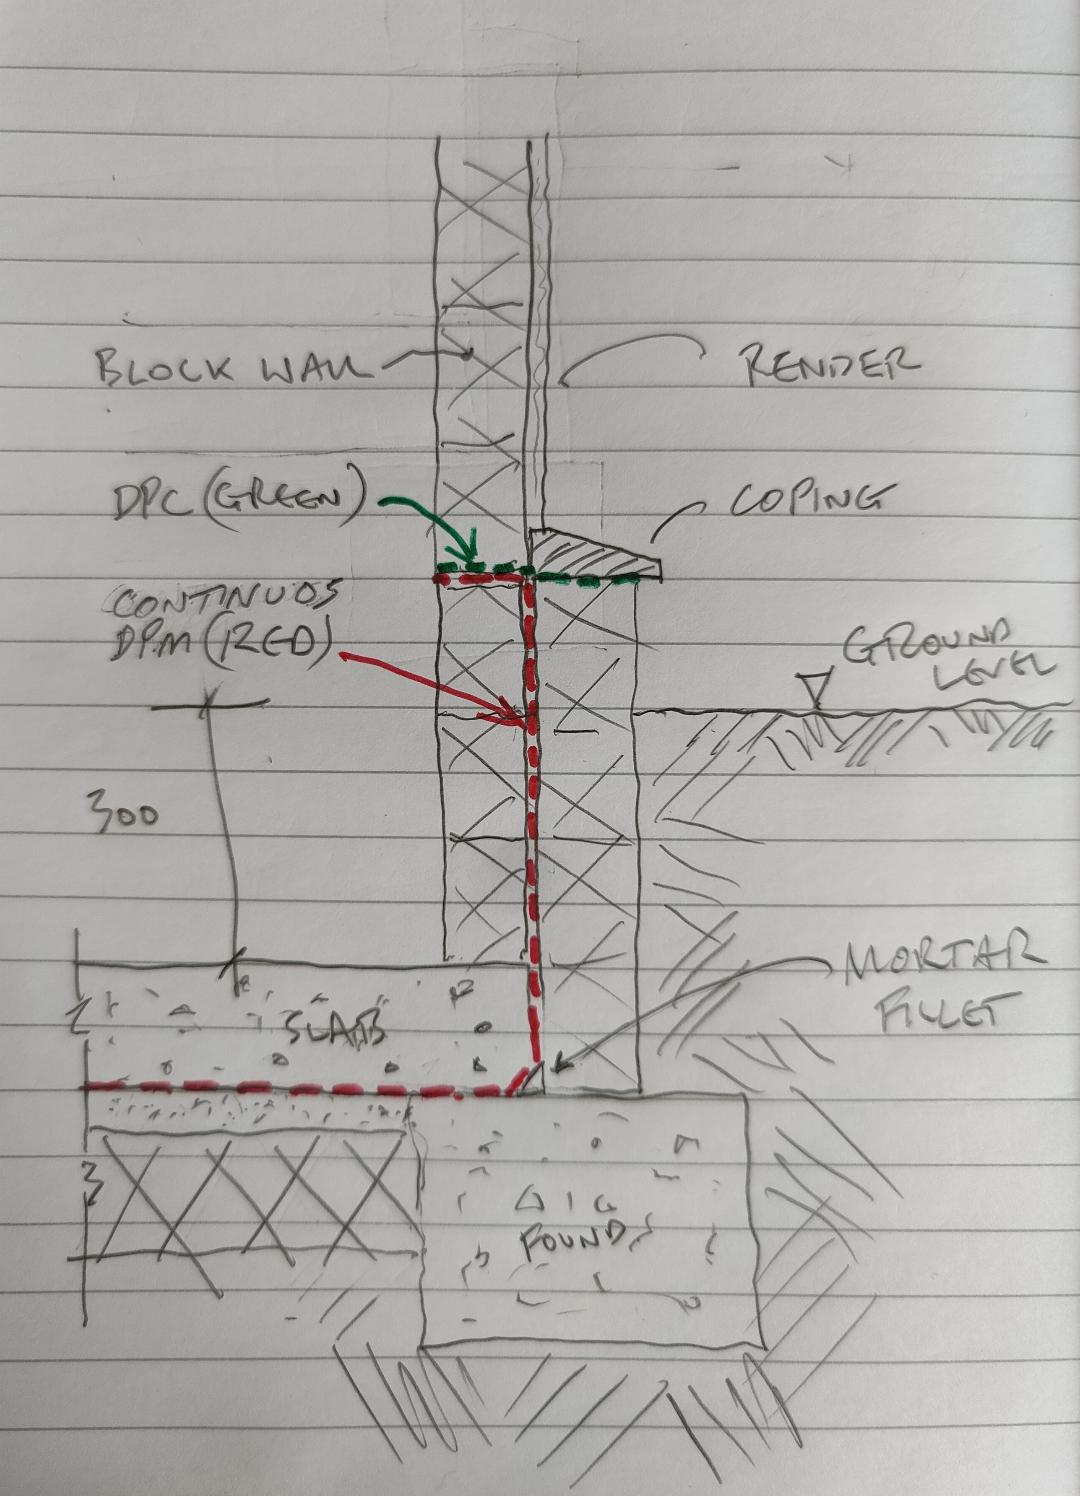 BLOCK WALL
RENDER
DPC (GREEN)
COPING
CONTINUOS
DPM (RED)
GROUND
LEVEL
300
MORTAR
FILLET
SLAB
FOUND